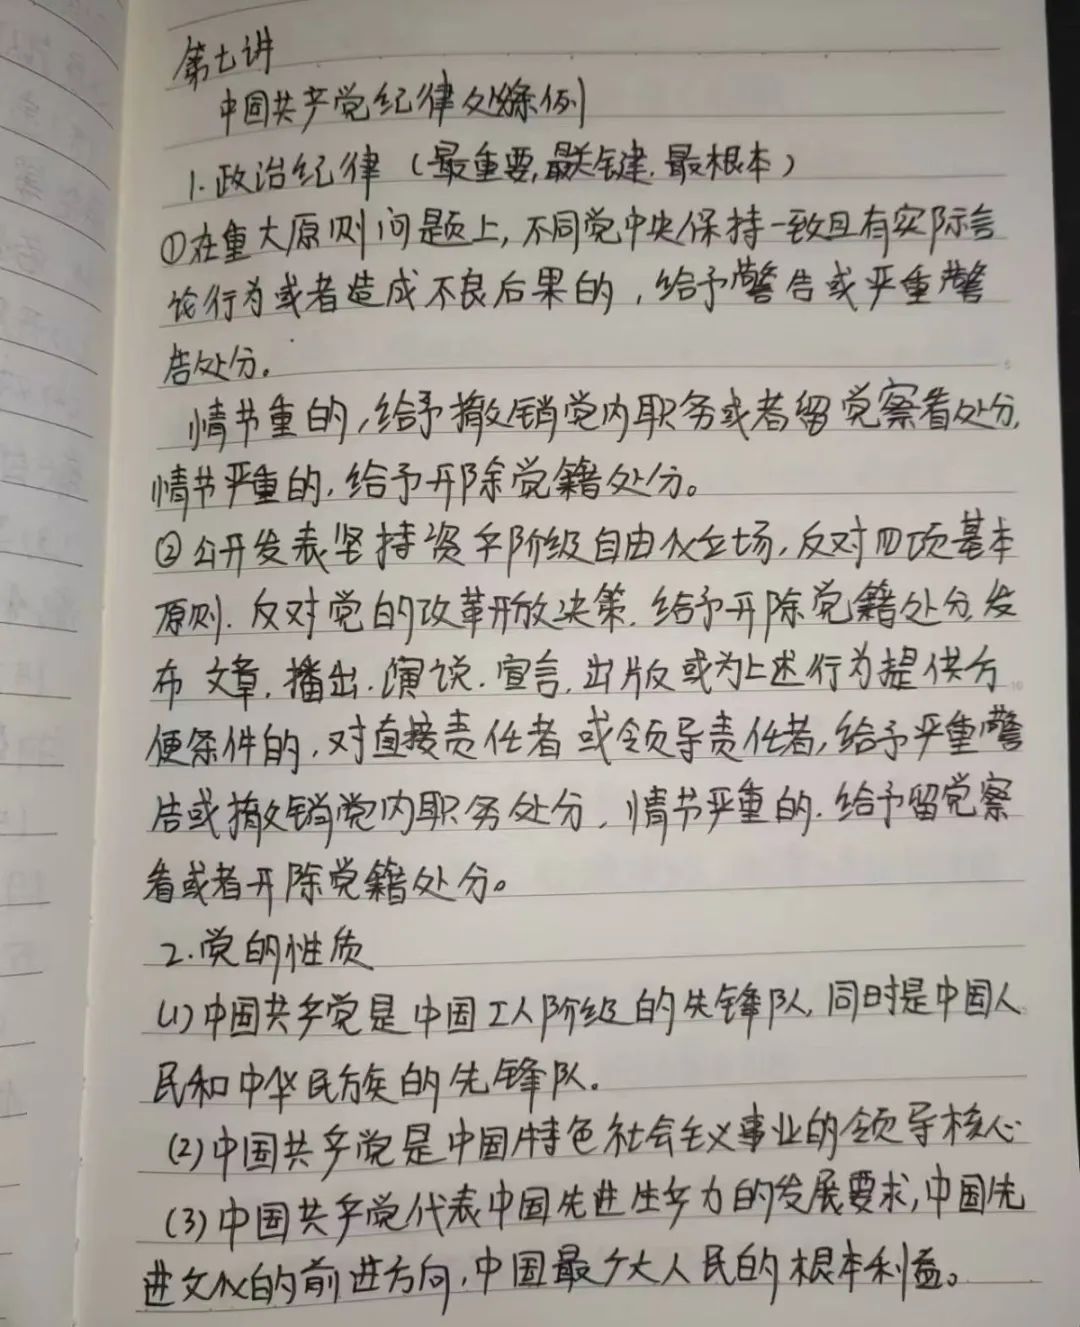 第七讲
中国共产党纪律处条例
1.政治纪律（最重要,最关键.最根本）
①在重大原则问题上,不同党中央保持一致且有实际言
论行为或者造成不良后果的,给予警告或严重警
告处分。
情节重的,给予撤销党内职务或者留党察看处分,
情节严重的,给予开除党籍处分。
②公开发表坚持资产阶级自由化立场,反对四项基本
原则.反对党的改革开放决策.给予开除党籍处分,发
布文章.播出.演说.宣言.出版或为上述行为提供方
便条件的,对直接责任者或领导责任者,给予严重警
告或撤销党内职务处分,情节严重的.给予留党察
看或者开除党籍处分。
2.党的性质
(1)中国共产党是中国工人阶级的先锋队,同时是中国人
民和中华民族的先锋队.
(2)中国共产党是中国特色社会主义事业的领导核心
(3)中国共产党代表中国先进生产力的发展要求,中国先
进文化的前进方向,中国最广大人民的根本利益。